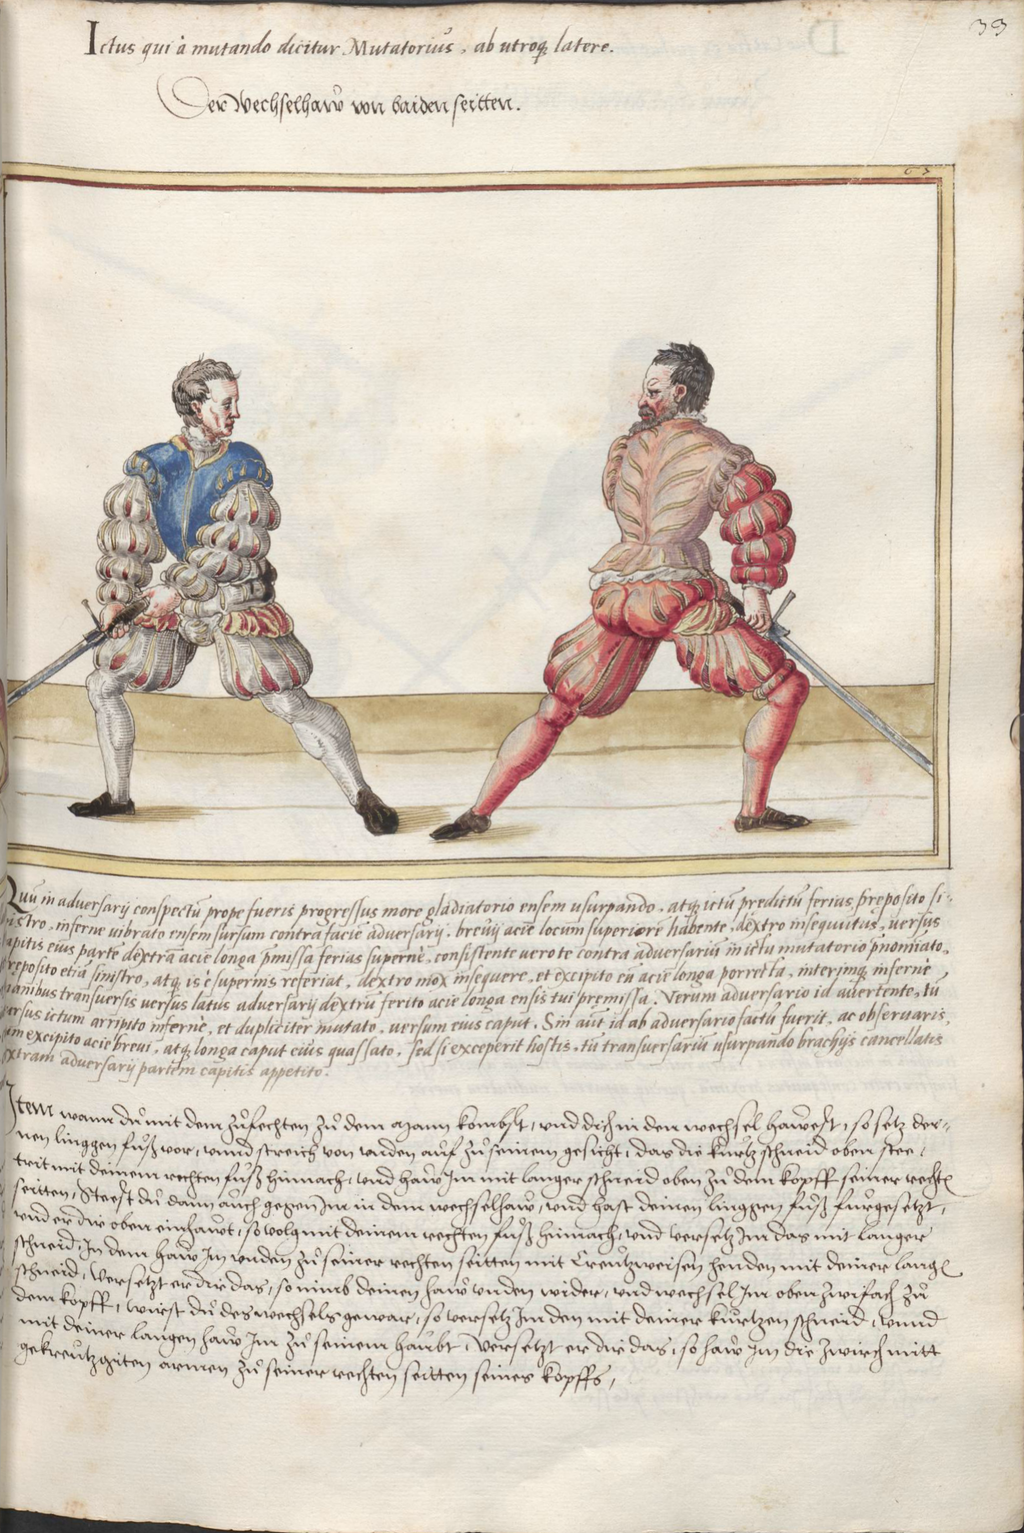 33
Ictus qui à mutando dicitur Mutatorius, ab utroq; latere.
Der Wechselhaw von baiden seitten.
65
Quũ in adversarij conspectũ prope fueris progressus more gladiatorio ensem usurpando, atq; ictũ predictũ ferias, preposito si-
nistro, inferne vibrato ensem sursum contra facie adversarij, brevij acie locum superiore habente, dextro insequutus, versus
capitis eius parte dextrã acie longa p̃missa ferias supernè, consistente vero te contra adversariũ in ictu mutatorio p̃nomiato,
preposito etiã sinistro, atq; is è supernis referiat, dextro mox insequere, et excipito eũ acie longa porrecta, interimq; infernè
manibus transversis versus latus adversarij dextrũ ferito acie longa ensis tui premissa. Verum adversario id avertente, tu
rursus ictum arripito infernè, et dupliciter mutato, versum eius caput. Sin aũt id ab adversario factũ fuerit, ac observaris,
eum excipito acie brevi, atq; longa caput eius quassato, sed si exceperit hostis, tu transversariũ usurpando brachijs cancellatis
extram adversarij partem capitis appetito.
Item wann du mit dem zufechten zu dem Mann kombst, und dich in den wechsel hawest, so setz dei-
nen linggen fuß vor, unnd streich von unden auf zu seinem gesicht, das die kurtz schneid oben stee,
trit mit deinem rechten fuß hinnach, und haw Im mit langer schneid oben zu dem kopff seiner rechtẽ
seitten, Steest du dann auch gegen Im in dem wechselhaw, und hast deinen linggen fuß furgesetzt,
und er dir oben einhawt, so volg mit deinem rechten fuß hinnach, und versetz Im das mit langer
schneid, In dem haw Im unden zu seiner rechten seitten mit Creutzweisen henden mit deiner langẽ
schneid, Versetzt er dir das, so nimb deinen haw unden wider, und wechsel Im oben zwifach zu
dem kopff, Wirst du des wechsels gewar, so versetz Im den mit deiner kurtzen schneid, unnd
mit deiner langen haw Im zu seinem haubt, Versetzt er dir das, so haw Im die zwirch mitt
gekreutzgiten armen zu seiner rechten seitten seines kopffs,